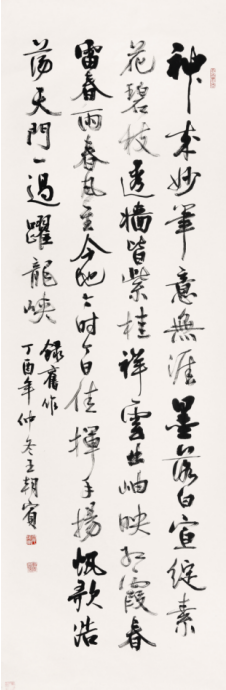 神来妙筆意無涯墨落白宣綻素
花碧枝透牆皆紫桂祥雲出岫映紅霞春
雷春雨春風至今地今时今日佳揮手揚帆歌浩
蕩天門一過躍龍峽
錄舊作
丁酉年仲冬王朝賓